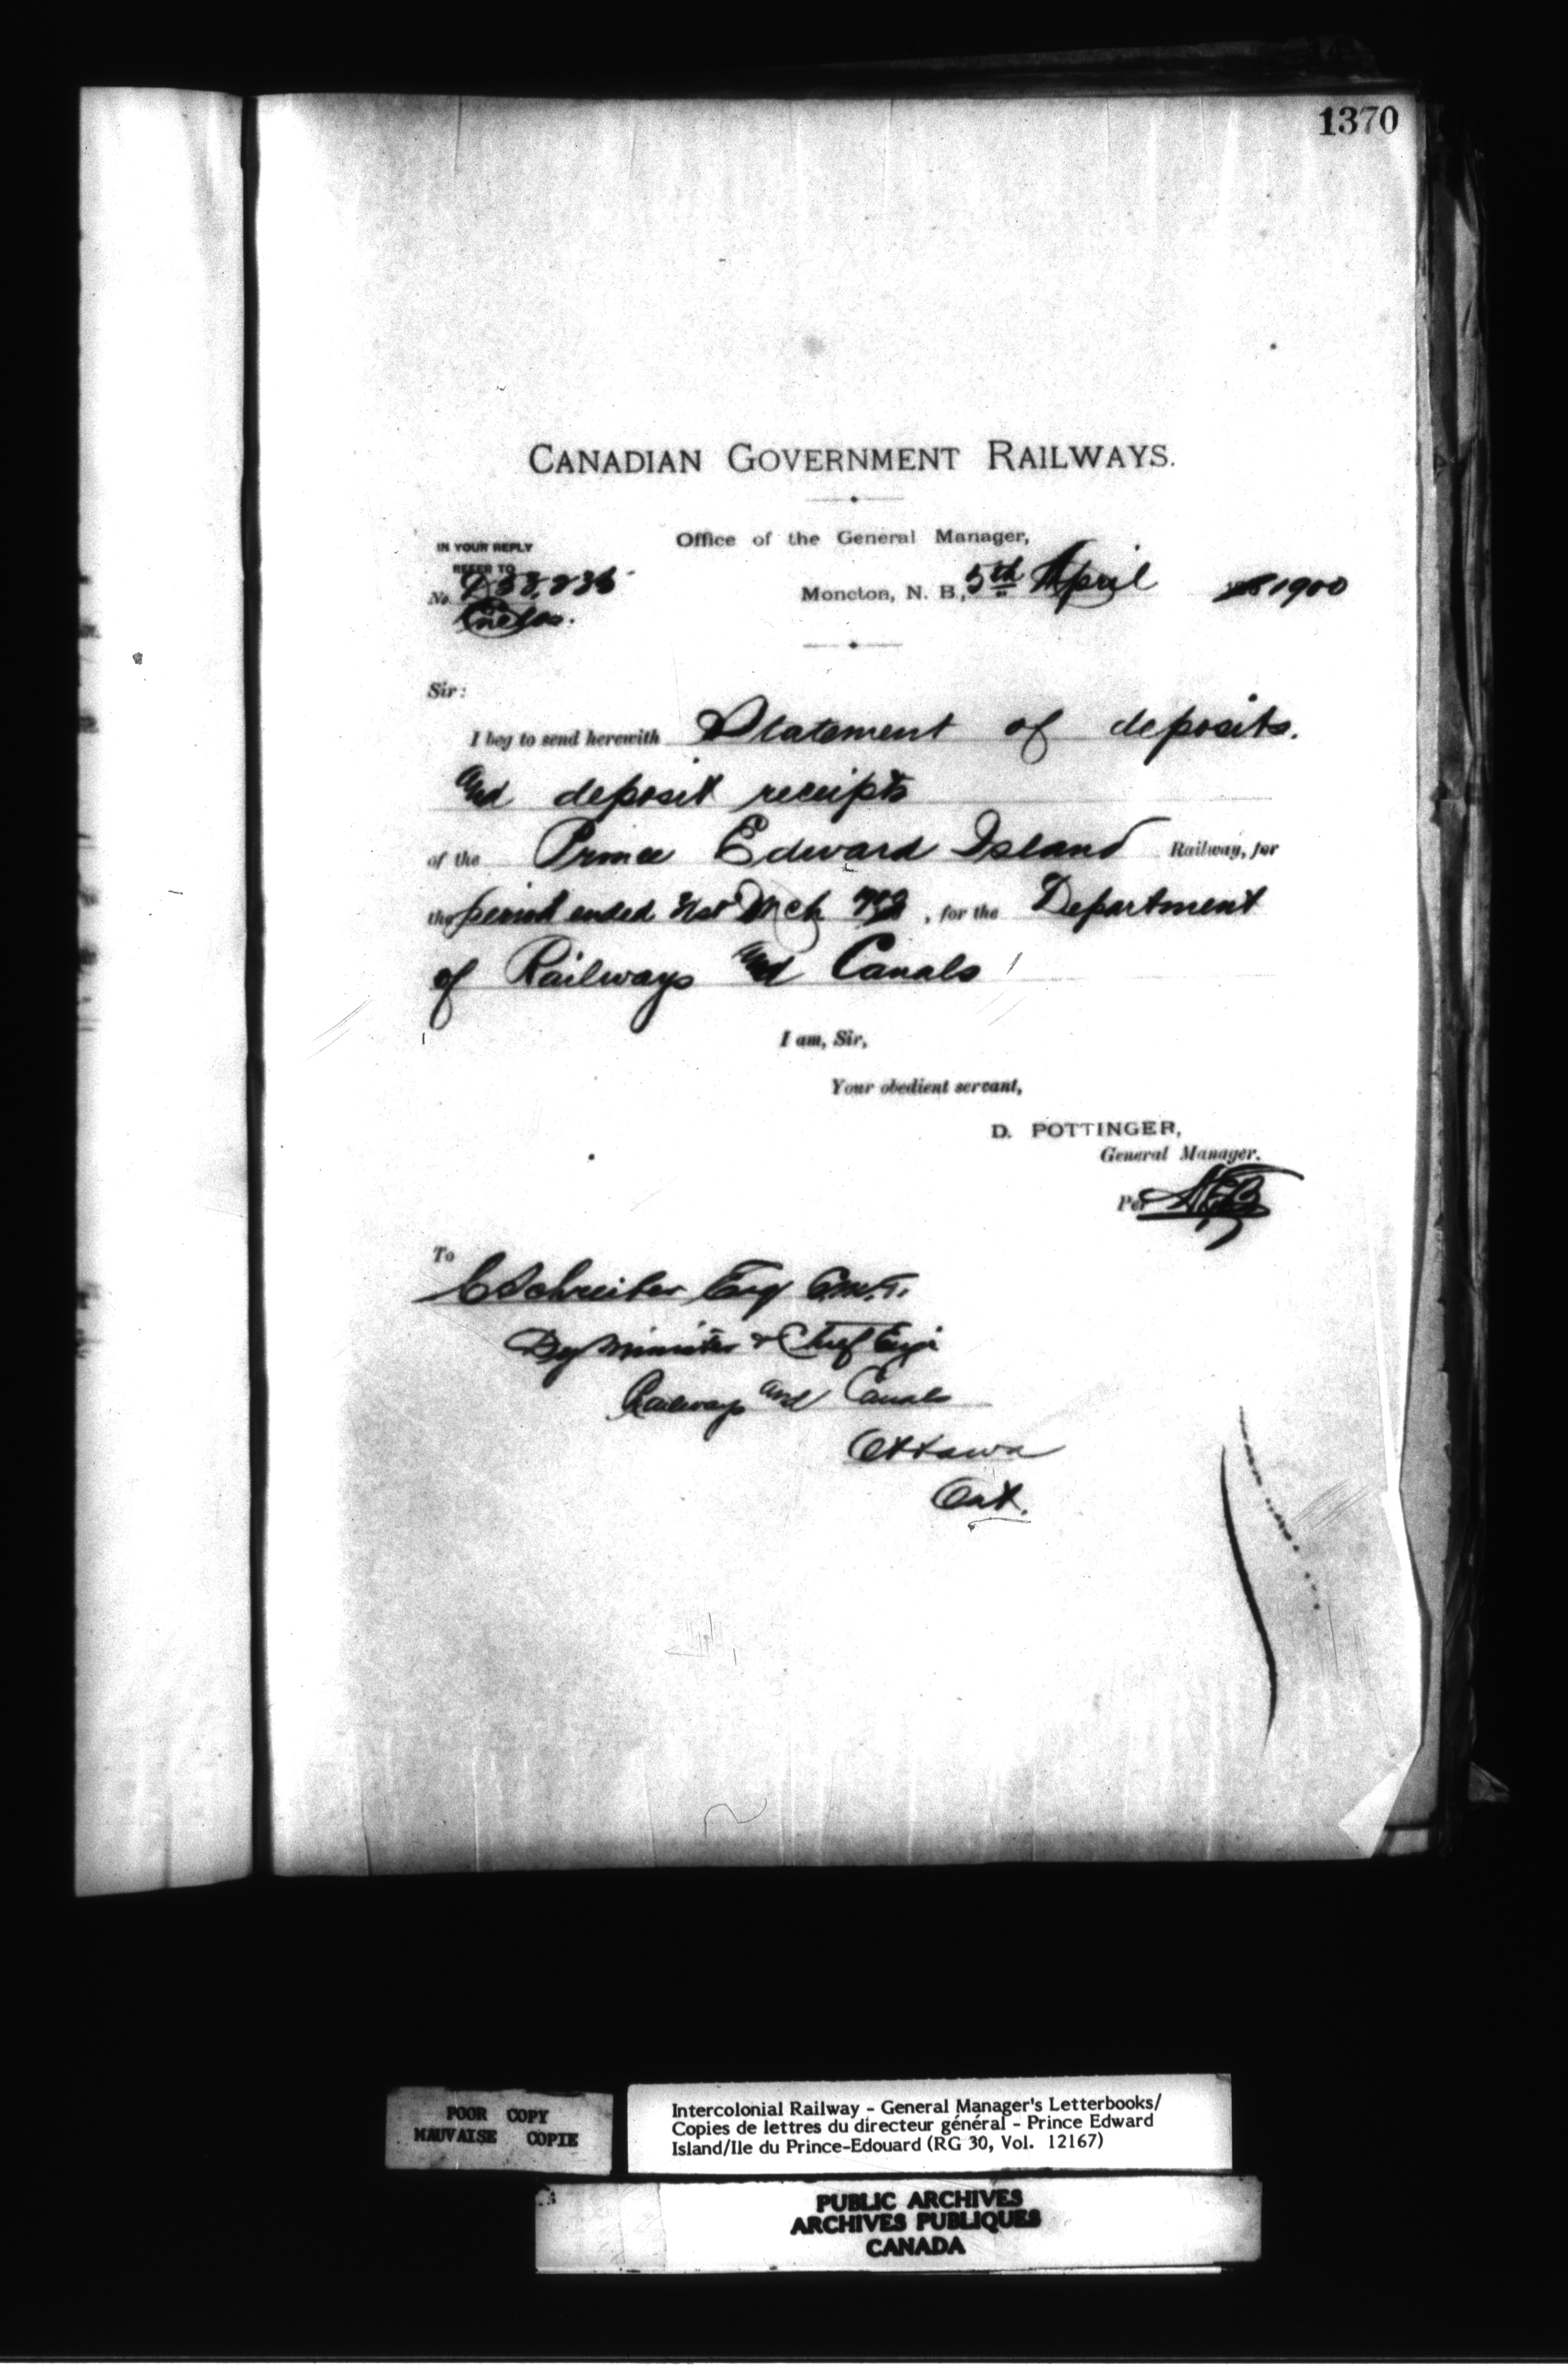 1370
CANADIAN GOVERNMENT RAILWAYS.
Office of the General Manager,
IN YOUR REPLY
REFER TO
No.
Moncton, N. B., 5th April 1900
Enclos.
Sir:
I beg to send herewith Statement of deposits.
and deposit receipts
of the Prince Edward Island Railway, for
the period ended 31st Mch, for the Department
of Railways and Canals
I am, Sir,
Your obedient servant,
D. POTTINGER,
General Manager.
Per
To
C Schreiber Esq C.M.G.
Dy Minister & Chief Engr
Railways and Canals
Ottawa
Ont.
POOR COPY
MAUVAISE COPIE
Intercolonial Railway - General Manager's Letterbooks/
Copies de lettres du directeur général - Prince Edward
Island/Ile du Prince-Edouard (RG 30, Vol. 12167)
PUBLIC ARCHIVES
ARCHIVES PUBLIQUES
CANADA